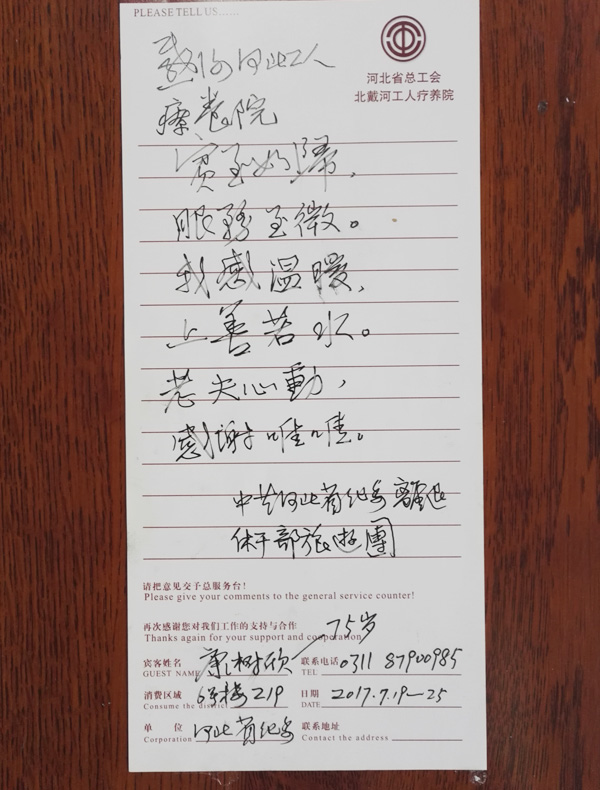 PLEASE TELL US......
河北省总工会
北戴河工人疗养院
戴河河北工人
療養院
賓至如歸，
服務至微。
我感溫暖，
上善若水。
老夫心動，
感謝唯唯。
中共河北省纪委離退
休干部旅遊團
请把意见交予总服务台！
Please give your comments to the general service counter!
再次感谢您对我们工作的支持与合作
Thanks again for your support and cooperation
75岁
宾客姓名 康树欣 联系电话 0311 87900985
GUEST NAME TEL
消费区域 6号楼219 日期 2017.7.19-25
Consume the district DATE
单 位 河北省纪委 联系地址
Corporation Contact the address